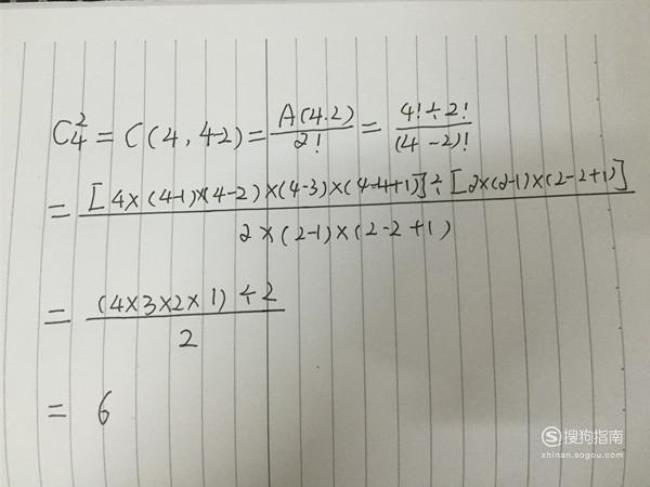 C₄² = C(4, 4-2) = A(4.2)/2! = 4!÷2!/(4-2)!
= [4×(4-1)×(4-2)×(4-3)×(4-4+1)]÷[2×(2-1)×(2-2+1)]/2×(2-1)×(2-2+1)
= (4×3×2×1)÷2/2
= 6
S 搜狗指南
zhinan.sogou.com